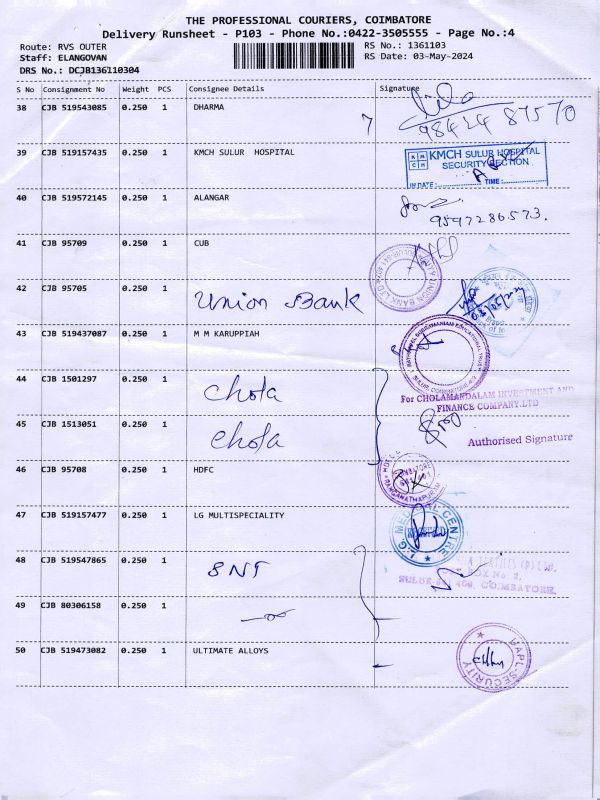 THE PROFESSIONAL COURIERS, COIMBATORE
Delivery Runsheet - P103 - Phone No.:0422-3505555 - Page No.:4
Route: RVS OUTER RS No.: 1361103
Staff: ELANGOVAN RS Date: 03-May-2024
DRS No.: DCJB136110304
S No Consignment No Weight PCS Consignee Details Signature
38 CJB 519543085 0.250 1 DHARMA
98424 87570
39 CJB 519157435 0.250 1 KMCH SULUR HOSPITAL
KMCH SULUR HOSPITAL
SECURITY SECTION
IN DATE: TIME:
40 CJB 519572145 0.250 1 ALANGAR
9597286573.
41 CJB 95709 0.250 1 CUB
42 CJB 95705 0.250 1 Union Bank
43 CJB 519437087 0.250 1 M M KARUPPIAH
44 CJB 1501297 0.250 1 Chola
For CHOLAMANDALAM INVESTMENT AND
FINANCE COMPANY.LTD
45 CJB 1513051 0.250 1 Chola
Authorised Signature
46 CJB 95708 0.250 1 HDFC
47 CJB 519157477 0.250 1 LG MULTISPECIALITY
L.G. MEDICAL CENTRE
48 CJB 519547865 0.250 1 SNT
BOX No 2,
COIMBATORE.
49 CJB 80306158 0.250 1
50 CJB 519473082 0.250 1 ULTIMATE ALLOYS
UAPL-SECURITY